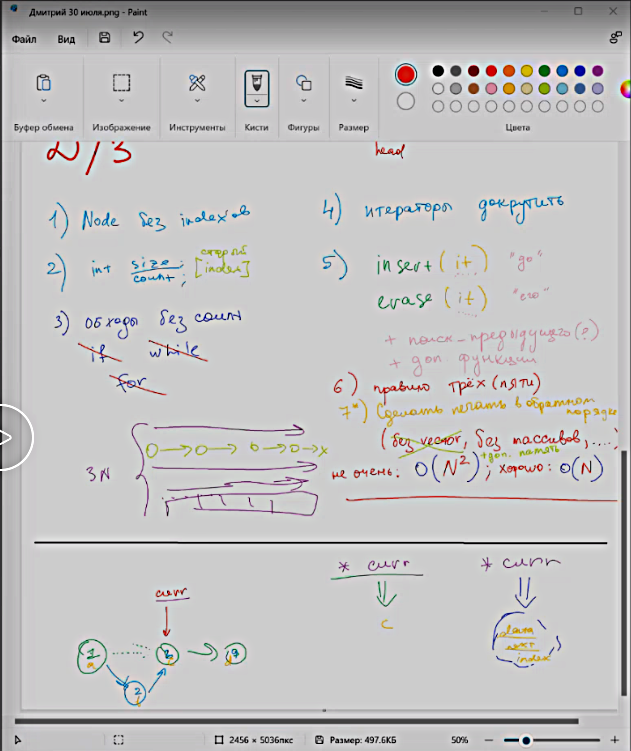 Дмитрий 30 июля.png - Paint
Файл
Вид
Буфер обмена
Изображение
Инструменты
Кисти
Фигуры
Размер
Цвета
Д/З
head
1) Node без index'ов
2) int size; [старый index]
count;
3) обходы без count
if while
for
3N
4) итераторы докрутить
5) insert (it) "до"
erase (it) "его"
+ поиск_предыдущего (?)
+ доп. функции
6) правило трёх (пяти)
7*) Сделать печать в обратном
порядке
(без vector, без массивов, ....)
+доп. память
не очень: O(N²); хорошо: O(N)
* curr
c
* curr
data
next
index
curr
1
a
2
2456 × 5036пкс
Размер: 497.6КБ
50%